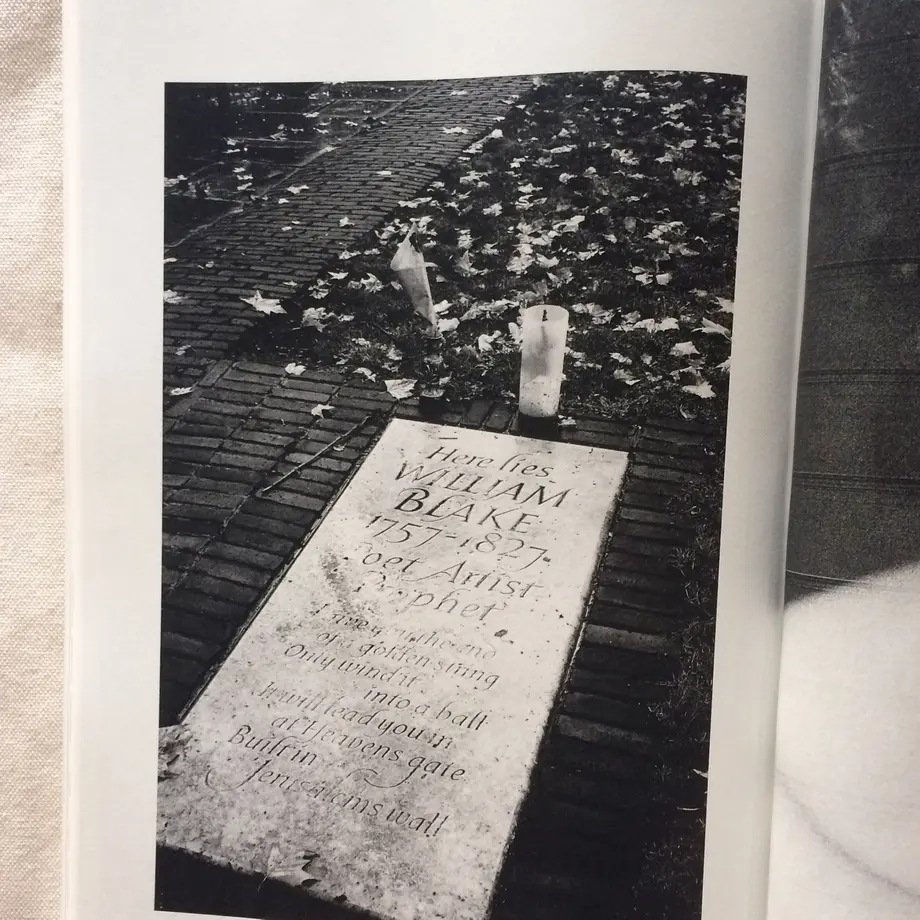 Here lies
WILLIAM
BLAKE
1757-1827
Poet Artist
Prophet
I give you the end
of a golden string
Only wind it
into a ball
It will lead you in
at Heavens gate
Built in
Jerusalems wall